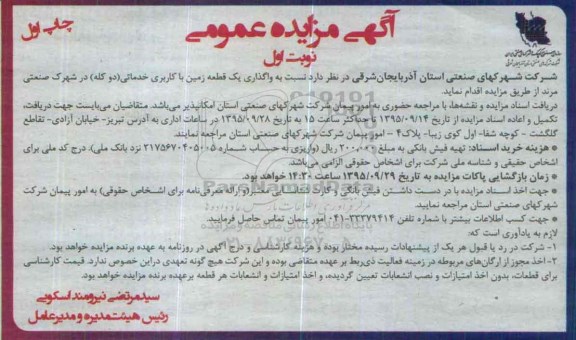 آگهی مزایده عمومی
نوبت اول
چاپ اول
شرکت شهرکهای صنعتی استان آذربایجان‌شرقی در نظر دارد نسبت به واگذاری یک قطعه زمین با کاربری خدماتی(دو کله) در شهرک صنعتی
مرند از طریق مزایده اقدام نماید.
دریافت اسناد مزایده و نقشه‌ها، با مراجعه حضوری به امور پیمان شرکت شهرکهای صنعتی استان امکانپذیر می‌باشد. متقاضیان می‌بایست جهت دریافت،
تکمیل و اعاده اسناد مزایده از تاریخ ۱۳۹۵/۰۹/۱۴ تا حداکثر ساعت ۱۵ به تاریخ ۱۳۹۵/۰۹/۲۸ در ساعات اداری به آدرس تبریز- خیابان آزادی- تقاطع
گلگشت - کوچه شفا- اول کوی زیبا- پلاک۴ – امور پیمان شرکت شهرکهای صنعتی استان مراجعه نمایند.
* هزینه خرید اسناد: تهیه فیش بانکی به مبلغ ۲۰۰,۰۰۰ ریال (واریزی به حساب شماره ۲۱۷۵۶۷۰۴۰۵۰۰۵ نزد بانک ملی). درج کد ملی برای
اشخاص حقیقی و شناسه ملی شرکت برای اشخاص حقوقی الزامی می‌باشد.
* زمان بازگشایی پاکات مزایده به تاریخ ۱۳۹۵/۰۹/۲۹ ساعت ۱۴:۳۰ خواهد بود.
* جهت اخذ اسناد مزایده با در دست داشتن فیش بانکی و کارت شناسایی معتبر(و ارائه معرفی‌نامه برای اشخاص حقوقی) به امور پیمان شرکت
شهرکهای صنعتی استان مراجعه نمایید.
* جهت کسب اطلاعات بیشتر با شماره تلفن ۳۳۳۷۹۴۱۴-۰۴۱ امور پیمان تماس حاصل فرمایید.
لازم به یادآوری است که:
۱- شرکت در رد یا قبول هر یک از پیشنهادات رسیده مختار بوده و هزینه کارشناسی و درج آگهی در روزنامه به عهده برنده مزایده خواهد بود.
۲- اخذ مجوز از ارگان‌های مربوطه در زمینه فعالیت ذی‌ربط بر عهده متقاضی بوده و این شرکت هیچ گونه تعهدی دراین خصوص ندارد. قیمت کارشناسی
برای قطعات، بدون اخذ امتیازات و نصب انشعابات تعیین گردیده، و اخذ امتیازات و انشعابات هر قطعه برعهده برنده مزایده خواهد بود.
سیدمرتضی نیرومند اسکویی
رئیس هیئت‌مدیره و مدیرعامل